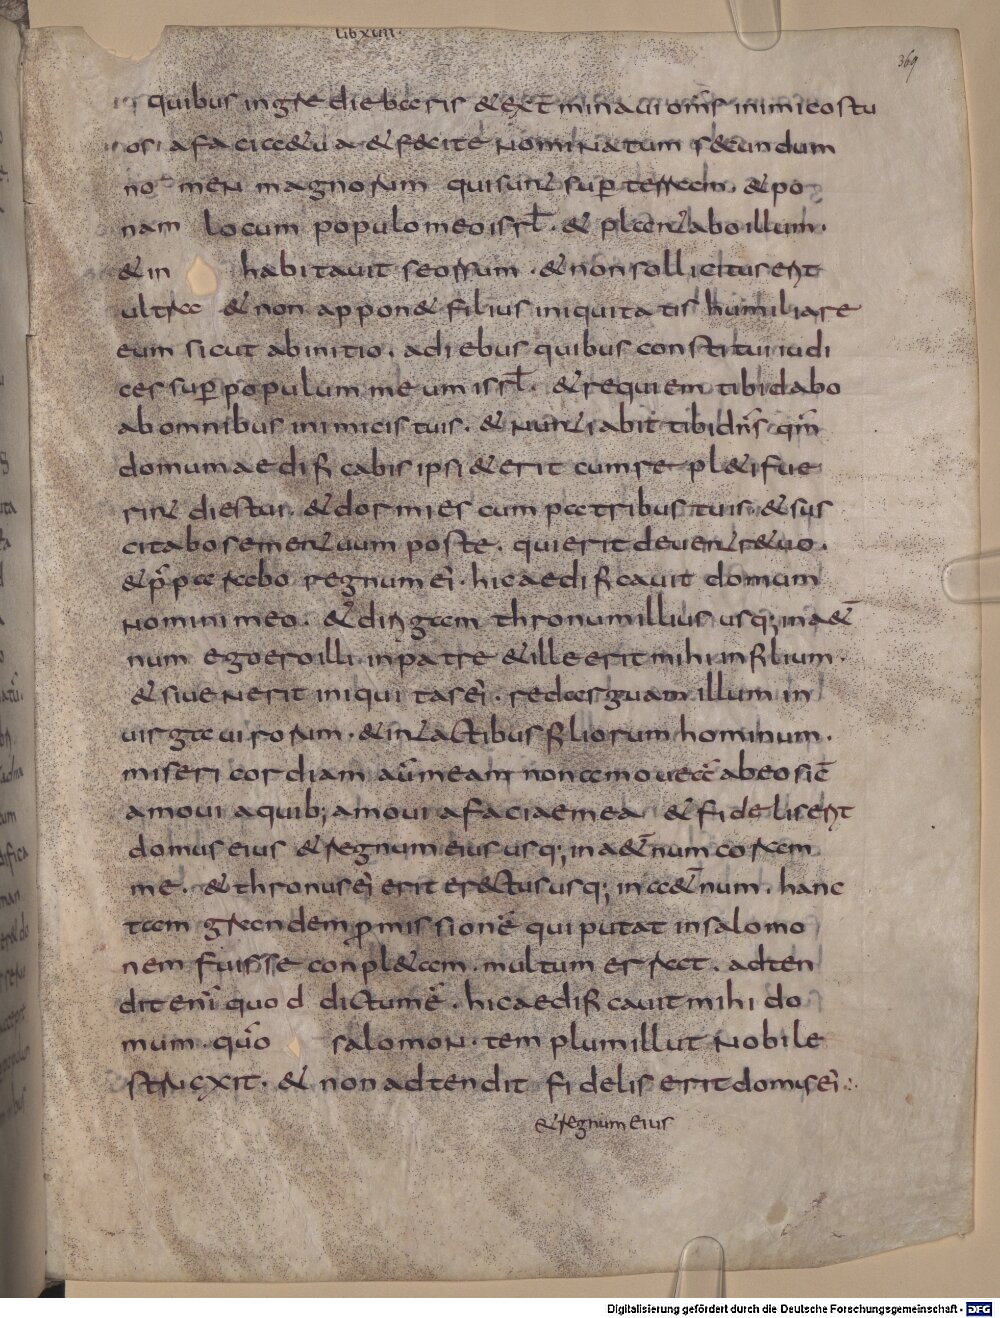 lib xuii.
369
is quibus ingrediebaris & ext̄minaui om̄s inimicostu
os. afacie&ua & fecite nominatum secundum
no men magnorum quisunt sup̄ terram. & po
nam locum populomeoisrl̄. & plantabo illum.
& in habitauit seorsum. & non sollicitus erit
ultra & non appon& filius iniquitatis humiliare
eum sicut abinitio. adiebus quibus constitui iudi
ces sup̄ populum meum isrl̄. & requiem tibi dabo
ab omnibus inimicis tuis. & nuntiabit tibi dn̄s qm̄
domum aedificabis ipsi & erit cum repl&i fue
rint dies tui. & dormies cum patribus tuis. & sus
citabo sementuum post te. qui erit deuentre tuo.
& p̄parabo regnum ei. hic aedificauit domum
nomini meo. & dirigam thronum illius usq; in a&̄
num ego ero illi in patre & ille erit mihi in filium.
& siuenerit iniquitas ei. redarguam illum in
uirga uirorum. & intactibus filiorum hominum.
misericordiam aūmeam non amoueā abeo sic̄
amoui aquib; amoui afaciaemea & fidelis erit
domus eius & regnum eius usq; in a&̄num coram
me. & thronus ei erit erectus usq; in a&̄num. hanc
tam grandem p̄missionē qui putat in salomo
nem fuisse conpl&am. multum errat. adten
dit enī quod dictum ē. hic aedificauit mihi do
mum. qūo salomon. templum illut nobile
struxit. & non adtendit fidelis erit domus ei:.
& regnum eius
Digitalisierung gefördert durch die Deutsche Forschungsgemeinschaft - DFG